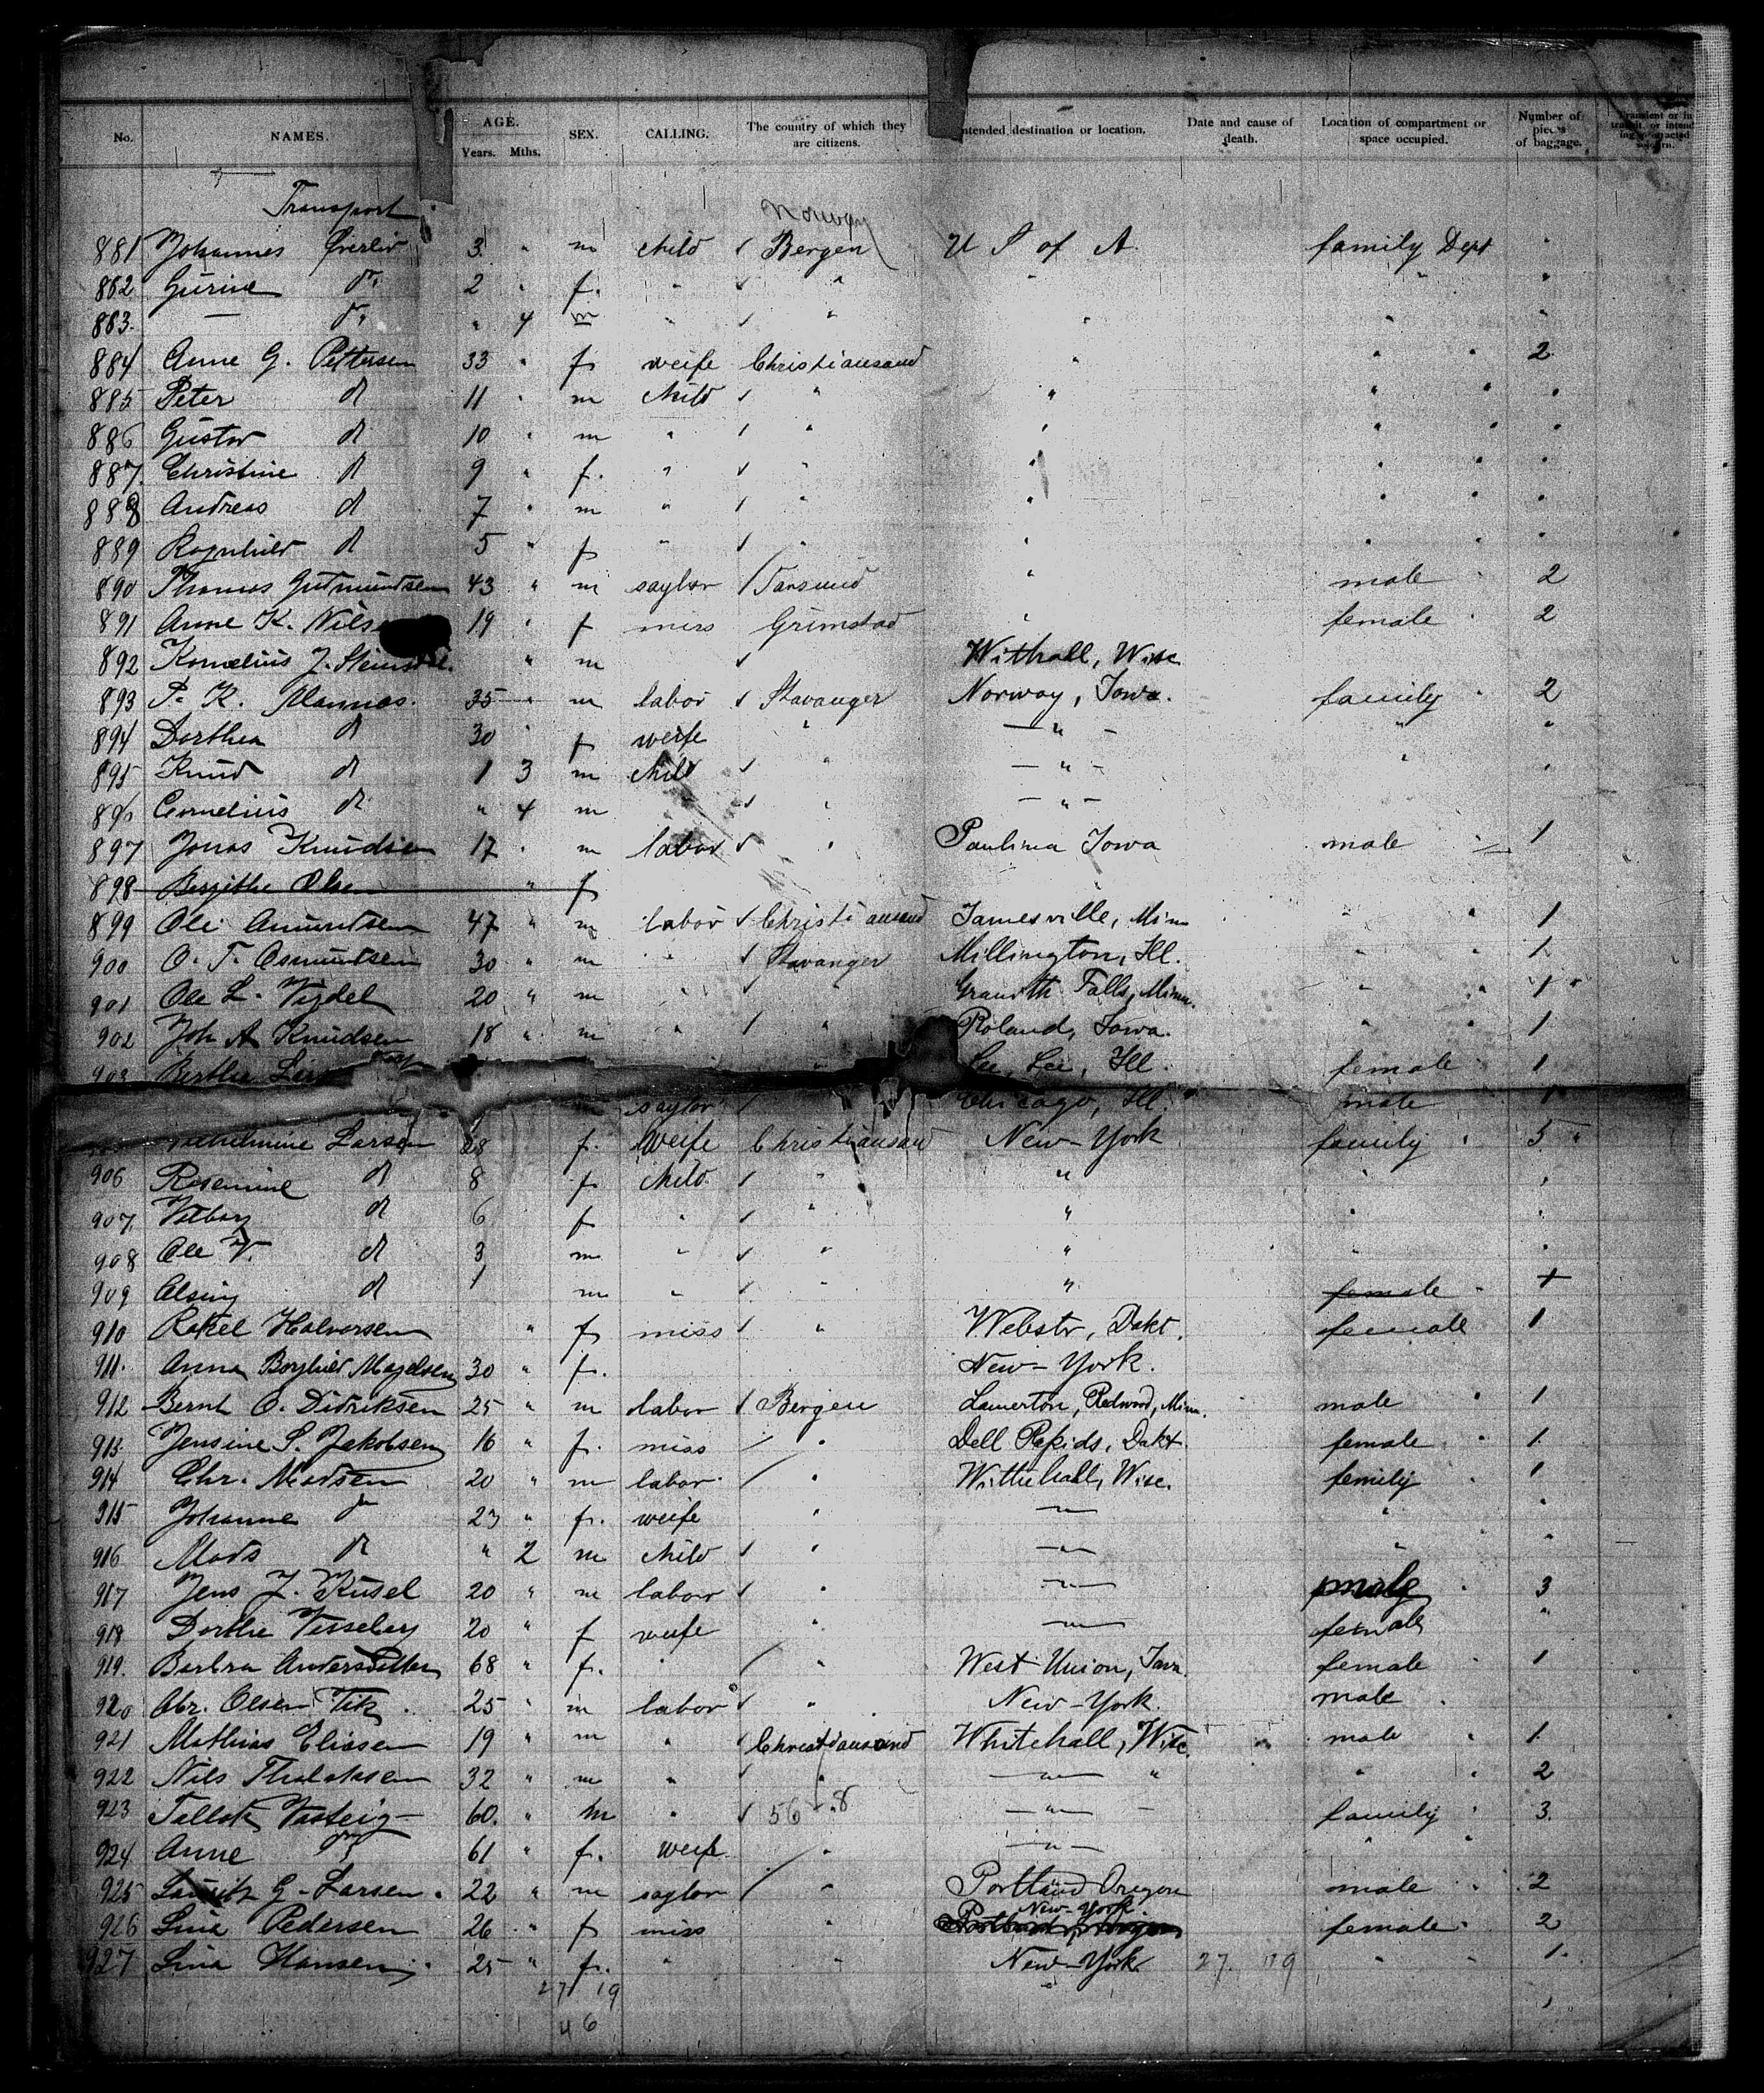 No. NAMES. AGE. Years. Mths. SEX. CALLING. The country of which they are citizens. intended destination or location. Date and cause of death. Location of compartment or space occupied. Number of pieces of baggage.
Transport
Norway
881 Johannes Överlir 3 " m child Bergen U S of A. family Dept "
882 Gurine do 2 " f. " " " " "
883. — do " 4 m " " " " "
884 Anne G. Pettersen 33 " f weife Christiansand " " " 2
885 Peter do 11 " m child " " " " "
886 Gustav do 10 " m " " " " " "
887. Christine do 9 " f. " " " " " "
888 Andreas do 7 " m " " " " " "
889 Ragnhild do 5 " f " " " " " "
890 Thomas Gutmundsen 43 " m saylor Farsund " male " 2
891 Anne K. Nilse 19 " f miss Grimstad " female " 2
892 Kornelius J. " m Withall, Wisc
893 P. K. Mannes. 35 " m labor Stavanger Norway, Iowa. family " 2
894 Dorthea do 30 " f weife " — " — " "
895 Knud do 1 3 m child " — " — " "
Cornelius do " 4 m " " — " —
897 Jonas Knudsen 17 " m labor " Paulina Iowa male 1
898 Bergithe Olsen " f
899 Ole Amundsen 47 " m labor Christiansand Jamesville, Minn " " 1
900 O. T. Osmundsen 30 " m " Stavanger Millington, Ill. " " 1
901 Ole L. Vigdel 20 " m " Granith Falls, Minn. " " 1
902 Joh A Knudsen 18 " m " " Roland, Iowa. " " 1
903 Berthe " Lee, Lee, Ill. female " 1
saylor Chicago, Ill. male 1
Larsen 28 f. weife Christiansand New-York family " 5 "
906 Rosemine do 8 f child. " " "
907. Valborg do 6 f " " " " "
908 Ole V. do 3 m " " " " "
909 do 1 m " " " female "
910 Rakel Halvorsen " f miss " Webster, Dakt. female 1
911. Anna Borghild Magelsen 30 " f. New-York.
912 Bernt O. Didriksen 25 " m labor Bergen Lamerton, Redwod, Minn. male " 1
913. Jensine S. Jakobsen 16 " f. miss " Dell Rapids, Dakt. female " 1.
914 Chr. Madsen 20 " m labor " Wittehall, Wisc. family 1
915 Johanne do 23 " f. weife " — " — " "
916 Mads do " 2 m child " — " — " "
917 Jens J. Kusel 20 " m labor " — " — male " 3
918 Dorthe Visseberg 20 " f weife " — " — female "
919. Barbra Andersdatter 68 " f. " " West Union, Iowa. female " 1
920 Abr. Olsen 25 " m labor " New-York. male "
921 Mathias Eliasen 19 " m " Christiansand Whitehall, Wisc. male " 1.
922 Nils 32 " m " — " — " " " 2
923 60. " m " 56 8 — " — family " 3.
924 Anne do 61 " f. weife " — " — " "
925 Lauritz G. Larsen. 22 " m saylor " Portland Oregon male " 2
New-York.
926 Lina Pedersen 26 " f miss " female " 2
927 Lina Hansen 25 " f. " " New-York 27. 19 " " 1.
27 19
46